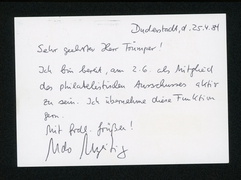 Duderstadt, d. 25.4.84
Sehr geehrter Herr Trümper!
Ich bin bereit, am 2.6. als Mitglied
des philatelistischen Ausschusses aktiv
zu sein. Ich übernehme diese Funktion
gern.
Mit frdl. Grüßen!
Udo